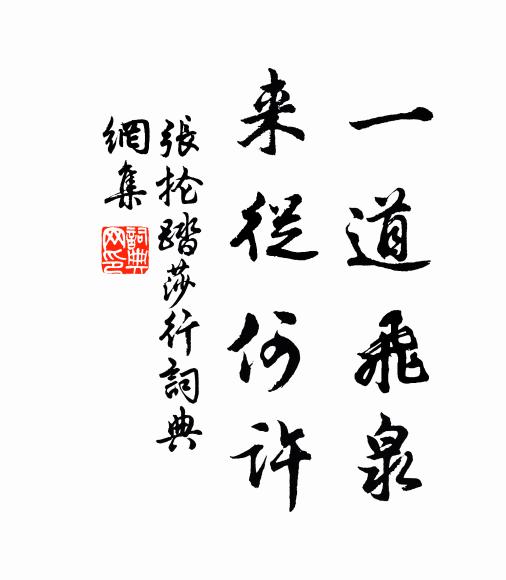 一道飛泉
来從何許
張掄踏莎行詞典
網集
詞典網印